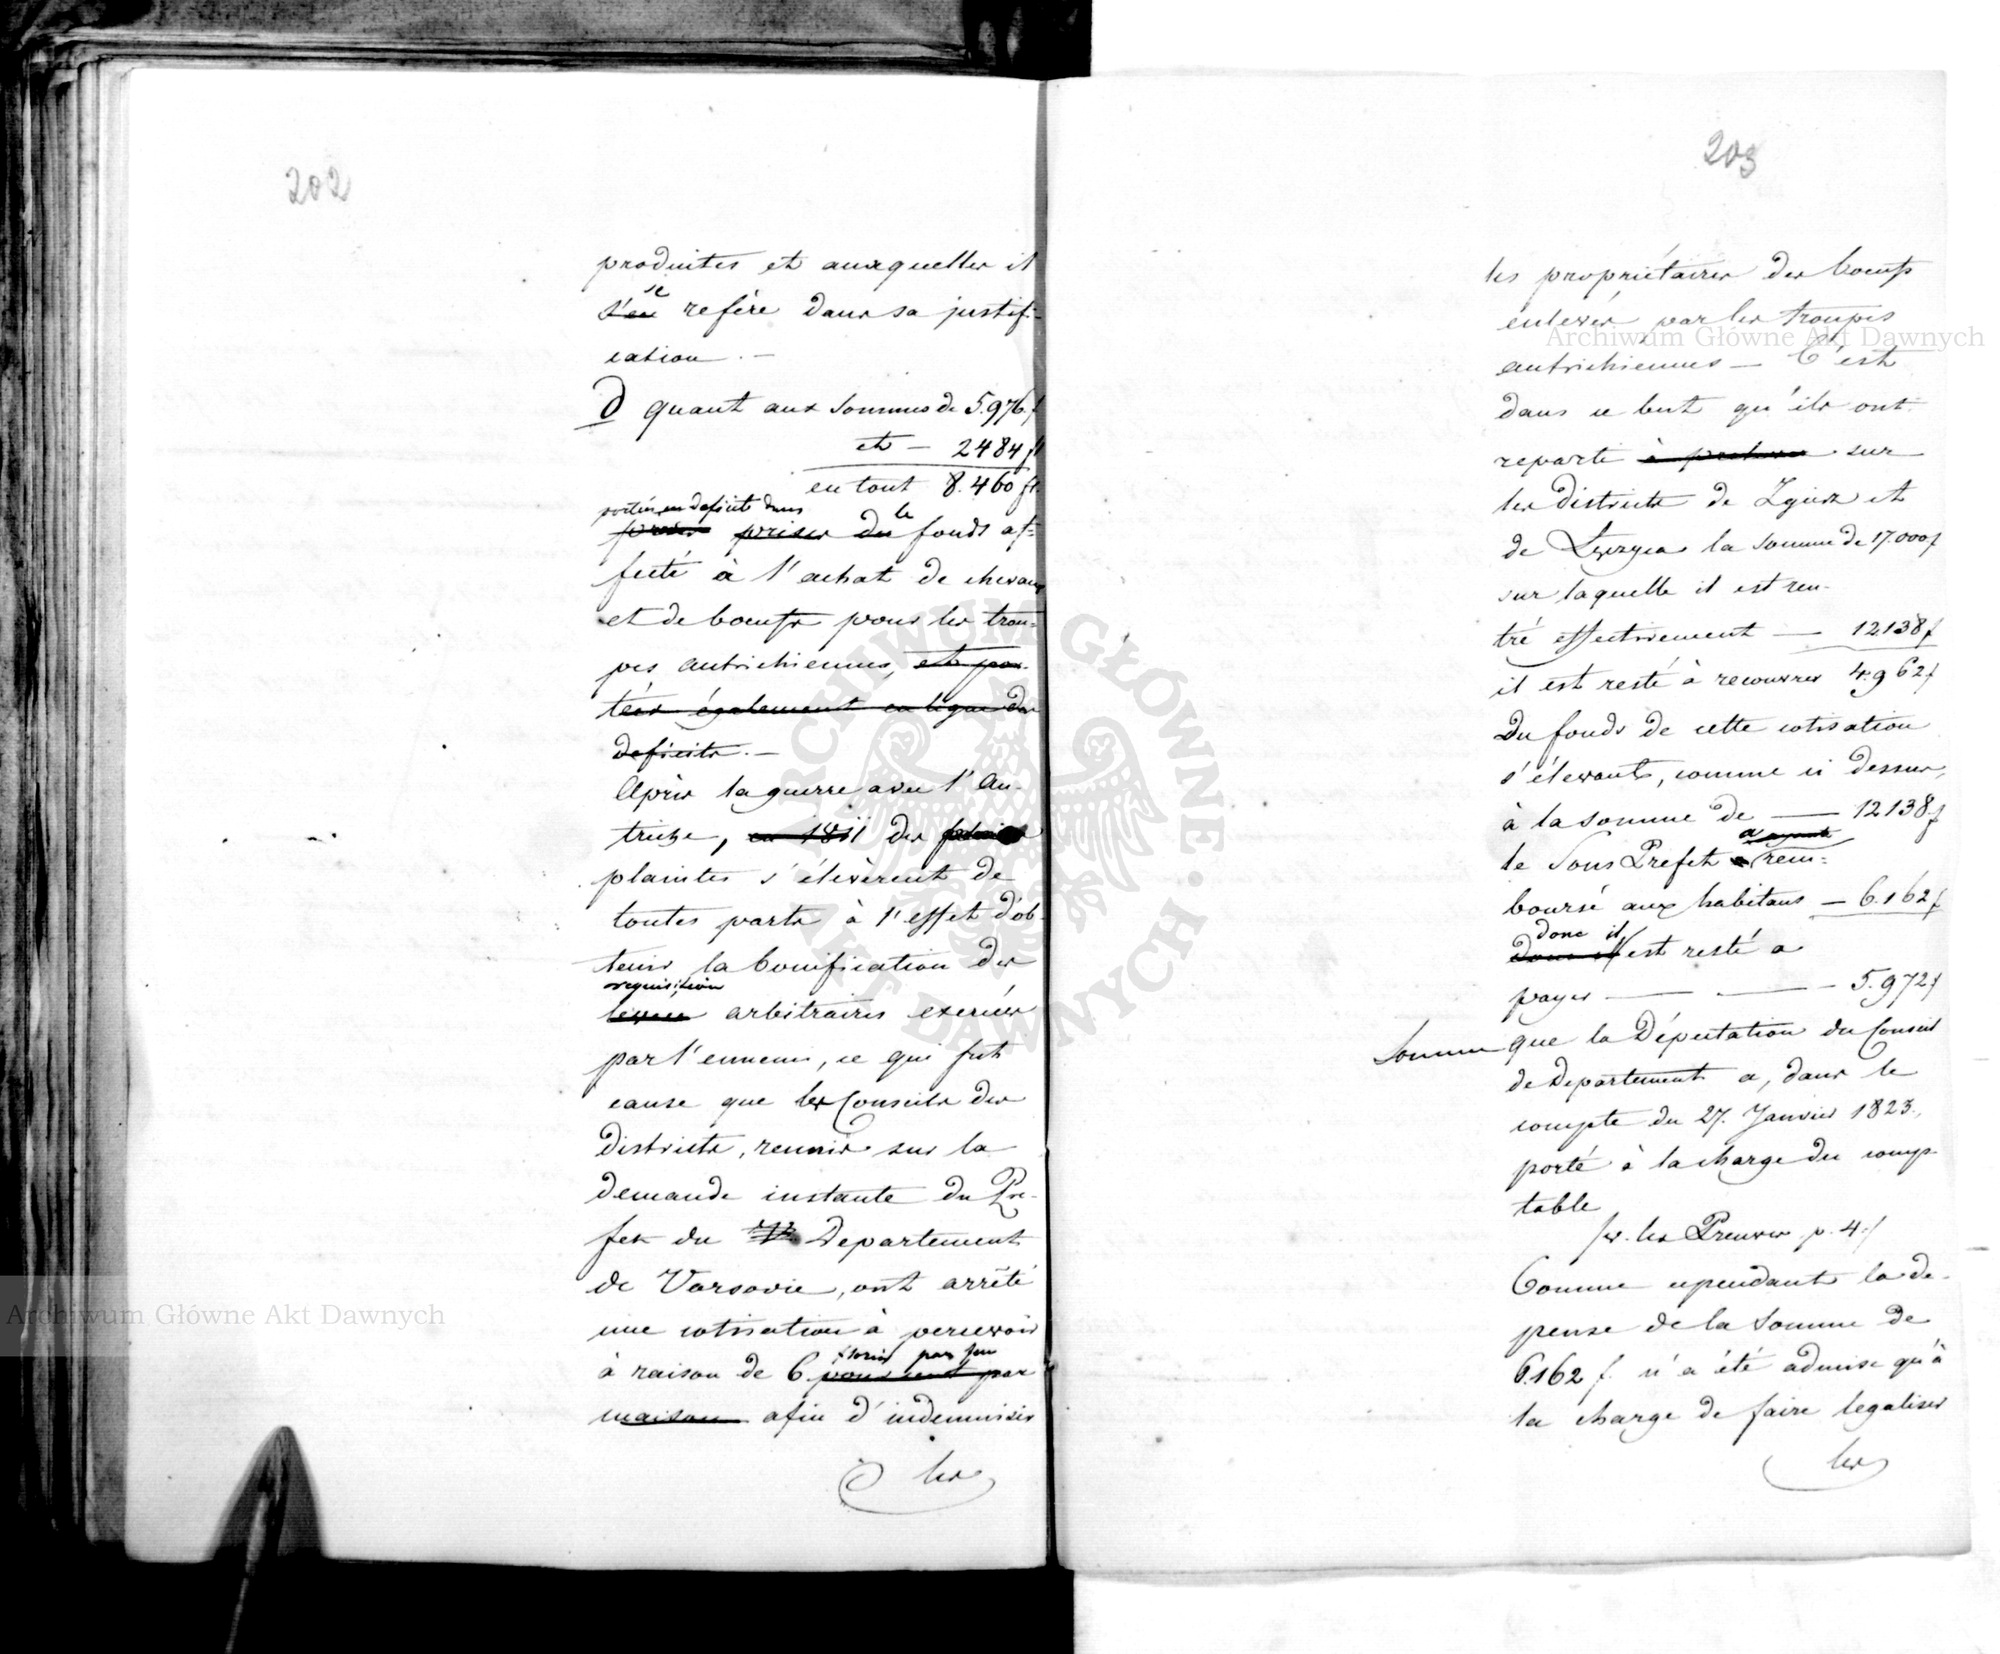 202
produites et auxquelles il
se
s'en refère dans sa justifi-
cation. —
D quant aux sommes de 5.976.f
et — 2484 fl
en tout 8.460 fl.
portées en deficit dans
prises du le fonds af-
fecté à l'achat de chevaux
et de boeufs pour les trou-
pes autrichiennes, et por-
tées également en ligne des
deficits. —
Après la guerre avec l'Au-
triche, en 1811 des
plaintes s'élevèrent de
toutes parts à l'effet d'ob-
tenir la bonification des
requisition
levées arbitraires exercées
par l'ennemi, ce qui fut
cause que les Conseils des
Districts, reunis sur la
demande instante du Pre-
fet du Departement
de Varsovie, ont arrêté
une cotisation à percevoir
florins par feu
à raison de 6 pour cent par
maison afin d'indemniser
les
203
les propriétaires des boeufs
enlevés par les troupes
autrichiennes — C'est
dans ce but qu'ils ont
reparti sur
les districts de Zgierz et
de Łęczyca la somme de 17.000f
sur laquelle il est ren-
tré effectivement — 12138f
il est resté à recouvrer 4.962f
Du fonds de cette cotisation
s'élevant, comme ci dessus,
à la somme de — 12138f
le Sous Prefet a ayant rem-
boursé aux habitans — 6.162f
donc il
donc il est resté a
payer — — 5.972f
Somme que la Députation du Conseil
de Departement a, dans le
compte du 27. Janvier 1823.,
porté à la charge du comp-
table
/v. les Preuves p. 4./
Comme cependant la de-
pense de la somme de
6.162 f. n'a été admise qu'à
la charge de faire legaliser
les
Archiwum Główne Akt Dawnych
Archiwum Główne Akt Dawnych
ARCHIWUM GŁÓWNE · AKT DAWNYCH ·